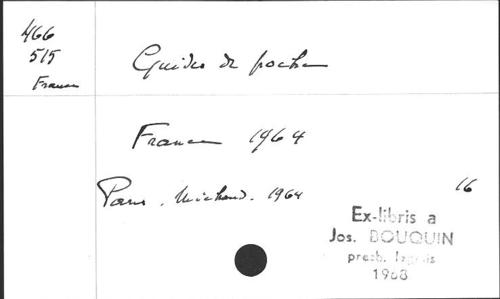 466
515
France
Guides de poche
France 1964
Paris. Michaud. 1964
16
Ex-libris a
Jos. BOUQUIN
presb.
1968